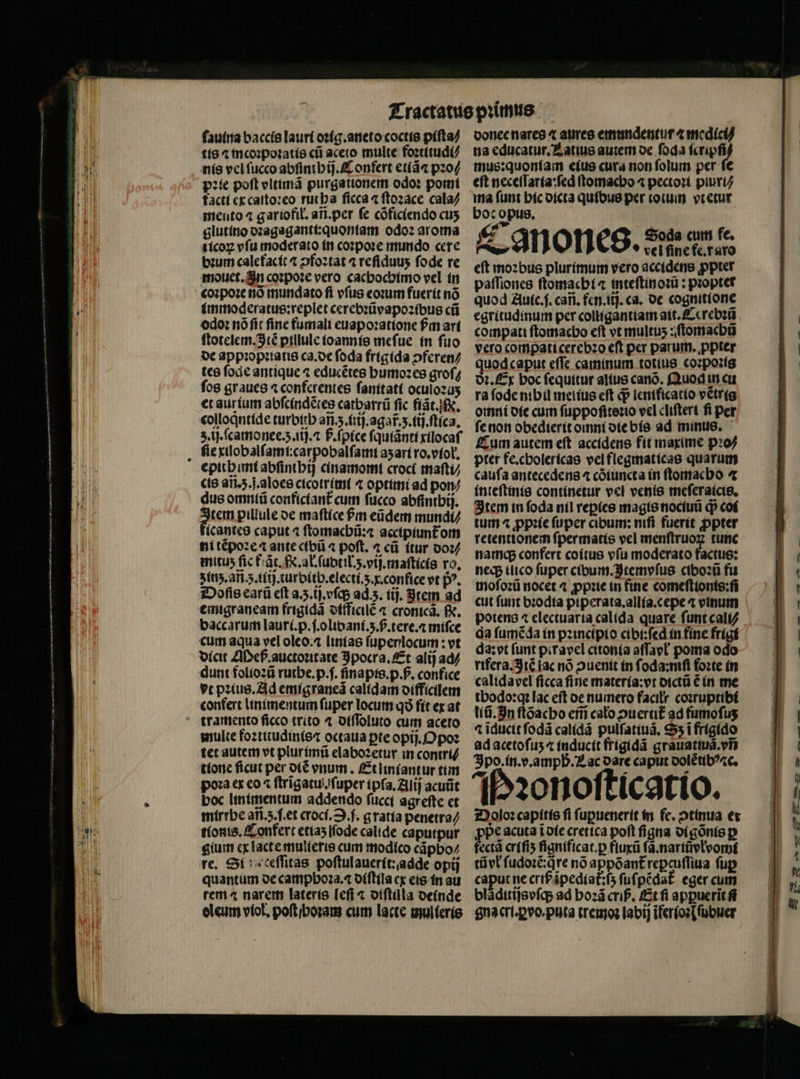 Tractatus pꝛimus
ſauina baccis lauri oꝛig.aneto coctis piſta⸗
tis ⁊ incoꝛpoꝛatis cū aceto multe foꝛtitudi⸗
nis vel ſucco abſinthij. Confert etiā ⁊ pꝛo⸗
pꝛie poſt vltimā purgationem odoꝛ pomi
facti ex caſtoꝛeo rutha ſicca ⁊ ſtoꝛace cala⸗
mento ⁊ gariofil. an̄.per ſe cōficiendo cuʒ
glutino dꝛagaganti:quoniam odoꝛ aroma
ticoꝝ vſu moderato in coꝛpoꝛe mundo cere
bꝛum calefacit ⁊ ↄfoꝛtat ⁊ reſiduuʒ ſode re
mouet. In coꝛpoꝛe vero cachochimo vel in
coꝛpoꝛe nō mundato ſi vſus eoꝛum fuerit nō
immoderatus:replet cerebꝛū vapoꝛibus cū
odoꝛ nō ſit ſine fumali euapoꝛatione ẜm ari
ſtotelem. Itē pillule ioannis meſue in ſuo
de appꝛopꝛiatis ca.de ſoda frigida ↄferen⸗
tes ſode antique ⁊ educētes humoꝛes groſ⸗
ſos graues ⁊ conferentes ſanitati oculoꝛuʒ
et aurium abſcindētes catharrū ſic fiāt. ℞.
colloqntide turbith an̄.ʒ.iiij.agaꝝ.ʒ.iij.ſtica.
ʒ.ij.ſcamonee.ʒ.iij.⁊ ß.ſpice ſquināti xilocaſ
ſie xilobalſami:carpobalſami aʒari ro.viol.
epithimi abſinthij cinamomi croci maſti⸗
cis an̄.ʒ.j.aloes cicotrimi ⁊ optimi ad pon⸗
dus omniū conficiant̄ cum ſucco abſinthij.
Item pillule de maſtice ẜm eūdem mundi⸗
ficantes caput ⁊ ſtomachū:⁊ accipiunt̄ om
ni tēpoꝛe ⁊ ante cibū ⁊ poſt. ⁊ cū itur doꝛ⸗
mituʒ ſic fiāt. ℞.al.ſubtil.ʒ.vij.maſticis ro.
ʒinʒ.an̄.ʒ.iiij.turbith.electi.ʒ.x.confice vt pꝰ.
Doſis earū eſt a.ʒ.ij.vſqꝫ ad.ʒ. iij. Item ad
emigraneam frigidā difficilē ⁊ cronicā. ℞.
baccarum lauri.p.j.olibani.ʒ.ß.tere.⁊ miſce
cum aqua vel oleo.⁊ linias ſuper locum : vt
dicit Meſ.auctoꝛitate Ipocra. Et alij ad⸗
dunt folioꝛū ruthe.p.ſ. ſinapis.p.ß. confice
vt pꝛius. Ad emigraneā calidam difficilem
confert linimentum ſuper locum qd̄ fit ex at
tramento ſicco trito ⁊ diſſoluto cum aceto
multe foꝛtitudinis ⁊ octaua ꝑte opij. Opoꝛ
tet autem vt plurimū elaboꝛetur in contri⸗
tione ſicut per diē vnum . Et liniantur tim
poꝛa ex eo ⁊ ſtrigatu. ſuper ipſa. Alij acuūt
hoc linimentum addendo ſucci agreſte et
mirrhe an̄.ʒ.ſ.et croci. Ɔ.ſ. gratia penetra⸗
tionis. Confert etiaʒ ſode calide caputpur
gium ex lacte mulieris cum modico cāpho⸗
re. Si neceſſitas poſtulauerit:adde opij
quantum de camphoꝛa.⁊ diſtila ex eis in au
rem ⁊ narem lateris leſi ⁊ diſtilla deinde
oleum viol. poſt hoꝛam cum lacte mulieris
donec nares ⁊ aures emundentur ⁊ medici⸗
na educatur. Latius autem de ſoda ſcripſi⸗
mus:quoniam eius cura non ſolum per ſe
eſt neceſſaria:ſed ſtomacho ⁊ pectoꝛi pluri⸗
ma ſunt hic dicta quibus per totum vtetur
hoc opus.
Canones. Soda cum fe. vel ſine fe.raro
eſt moꝛbus plurimum vero accidens ꝓpter
paſſiones ſtomachi ⁊ inteſtinoꝛū : pꝛopter
quod Auic.ſ. can̄. fen.iij. ca. de cognitione
egritudinum per colligantiam ait. Cerebꝛū
compati ſtomacho eſt vt multuʒ : ſtomachū
vero compati cerebꝛo eſt per parum. ꝓpter
quod caput eſſe caminum totius coꝛpoꝛis
dꝛ. Ex hoc ſequitur alius canō. Quod in cu
ra ſode nihil melius eſt ꝙ lenificatio vētris
omni die cum ſuppoſitoꝛio vel cliſteri ſi per
ſe non obedierit omni die bis ad minus.
Cum autem eſt accidens fit maxime pꝛo⸗
pter fe.cholericas vel flegmaticas quarum
cauſa antecedens ⁊ cōiuncta in ſtomacho ⁊
inteſtinis continetur vel venis meſeraicis.
Item in ſoda nil repies magis nociuū ꝙ coi
tum ⁊ ꝓpꝛie ſuper cibum: niſi fuerit ꝓpter
retentionem ſpermatis vel menſtruoꝝ tunc
namqꝫ confert coitus vſu moderato factus:
neqꝫ ilico ſuper cibum. Item vſus ciboꝛū fu
moſoꝛū nocet ⁊ ꝓpꝛie in fine comeſtionis:ſi
cut ſunt bꝛodia piperata.allia.cepe ⁊ vinum
potens ⁊ electuaria calida quare ſunt cali⸗
da ſumēda in pꝛincipio cibi:ſed in fine frigi
da:vt ſunt pira vel citonia aſſa vl poma odo
rifera. Itē lac nō ↄuenit in ſoda:niſi foꝛte in
calida vel ſicca ſine materia:vt dictū ē in me
thodo:qꝛ lac eſt de numero facilr coꝛruptibi
liū. In ſtōacho em̄ calo ↄuertit̄ ad fumoſuʒ
⁊ īducit ſodā calidā pulſatiuā. Sʒ ī frigido
ad acetoſuʒ ⁊ inducit frigidā grauatiuā.vn̄
Ipo.in.v.amph. Lac dare caput dolētibꝰ ⁊c.
Pꝛonoſticatio.
Doloꝛ capitis ſi ſupuenerit in fe. ↄtinua et
ꝓpe acuta ī die cretica poſt ſigna digōnis ꝑ
fectā criſis ſignificat.ꝑ fluxū ſā.nariū vl vomi
tū vl ſudoꝛē:q̄re nō appōant̄ repcuſſiua ſuꝑ
caput ne criſ̄ īpediat̄:ſʒ ſuſpēdat̄ eger cum
blāditijs vſqꝫ ad hoꝛā criſ̄. Et ſi appuerit ſi
gna cri.ꝑ vo.puta tremoꝛ labij īferioꝛ̄ ſubuer